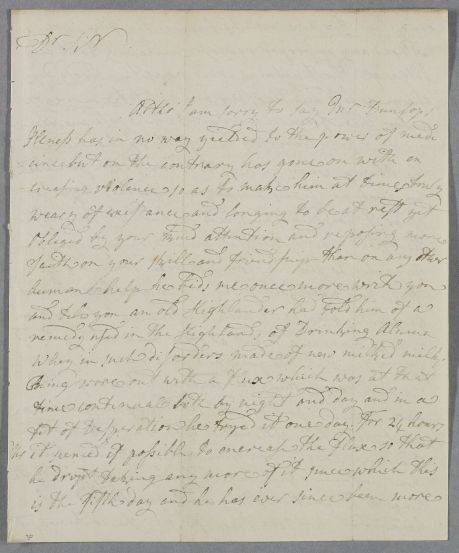 Dr. Sir
Altho' I am sorry to say Mr Dunlops
Illness has in no way yielded to the power of medi
cine but on the contrary has gone on with en
creasing violence so as to make him at times truly
weary of existance and longing to be at rest yet
obliged by your kind attention and reposing more
faith on your skill and friendship than on any other
human help he bids me once more write you
and tell you an old Highlander had told him of a
remedy used in the Highlands of Drinking Alum
Whey in such disorders made of new milked milk.
Being wore out with a flux which was at that
time continual both by night and day and in a
fit of desperation he tryed it one day for 24 hours
it semed if possible to encrease the Flux so that
he dropt taking any more of it since which this
is the fifth day and he has ever since been more